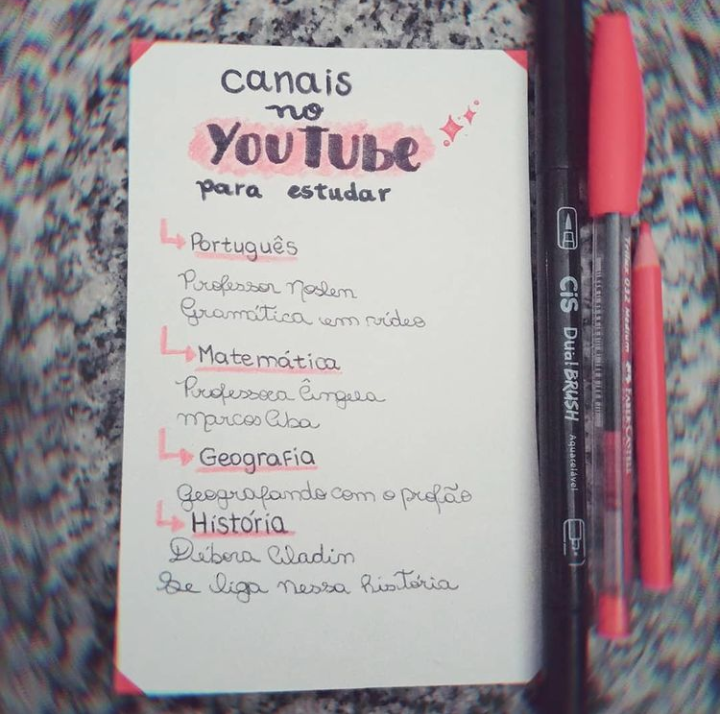 canais
no
YouTube
para estudar
Português
Professor Noslen
Gramática em vídeo
Matemática
Professora Ângela
Marcos Aba
Geografia
Geografando com o profão
História
Débora Aladin
Se liga nessa história
CiS Dual BRUSH Aquarelável
Trilux 032 Medium FABER-CASTELL